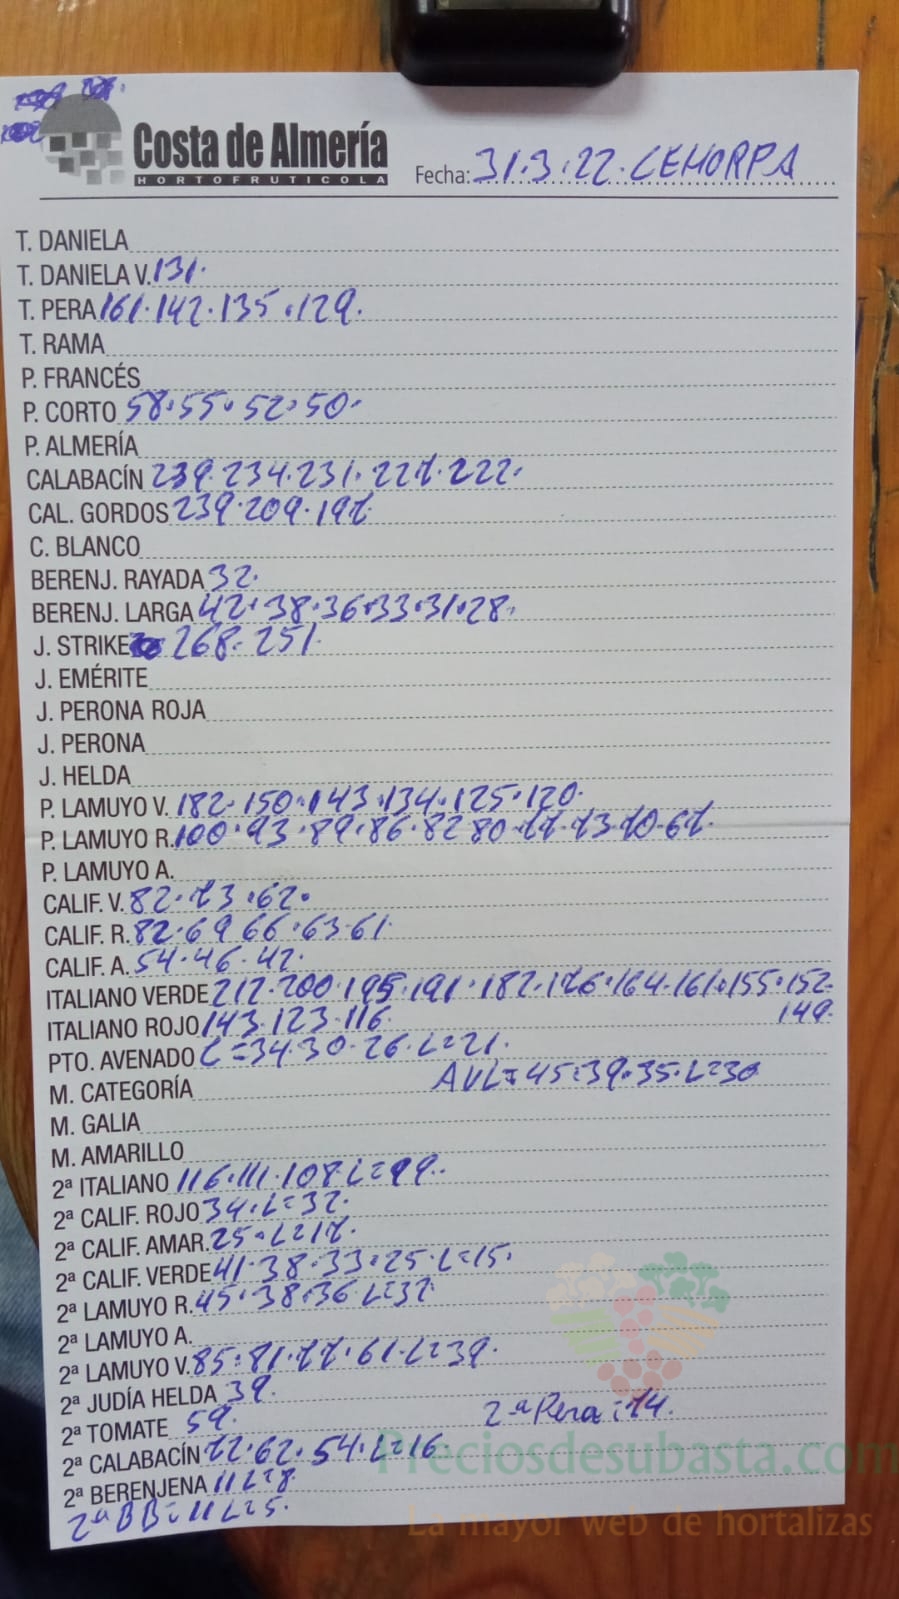 Costa de Almería
HORTOFRUTICOLA
Fecha: 31.3.22. CEHORPA
T. DANIELA
T. DANIELA V. 131.
T. PERA 161.142.135.129.
T. RAMA
P. FRANCÉS
P. CORTO 58.55.52.50.
P. ALMERÍA
CALABACÍN 239.234.231.227.222.
CAL. GORDOS 239.209.197
C. BLANCO
BERENJ. RAYADA 32.
BERENJ. LARGA 42.38.36.33.31.28.
J. STRIKE 268.251.
J. EMÉRITE
J. PERONA ROJA
J. PERONA
J. HELDA
P. LAMUYO V. 182.150.143.134.125.120.
P. LAMUYO R. 100.93.89.86.82 80.77.73.70.67.
P. LAMUYO A.
CALIF. V. 82.73.62.
CALIF. R. 82.69 66.63.61.
CALIF. A. 54.46.42.
ITALIANO VERDE 212.200.195.191.182.176.164.161.155.152.
149.
ITALIANO ROJO 143.123.116.
PTO. AVENADO C=34.30.26.L=21.
AVL=45.39.35.L=30
M. CATEGORÍA
M. GALIA
M. AMARILLO
2ª ITALIANO 116.111.108.L=99.
2ª CALIF. ROJO 34.L=32.
2ª CALIF. AMAR. 25.L=17.
2ª CALIF. VERDE 41.38.33.25.L=15.
2ª LAMUYO R. 45.38.36 L=32
2ª LAMUYO A.
2ª LAMUYO V. 85.81.77.61.L=39.
2ª JUDÍA HELDA 39.
2ª TOMATE 59.
2ª Pera=14.
2ª CALABACÍN 72.62.54.L=16
2ª BERENJENA 11 L=8
2ª BB=11 L=5.
Preciosdesubasta.com
La mayor web de hortalizas